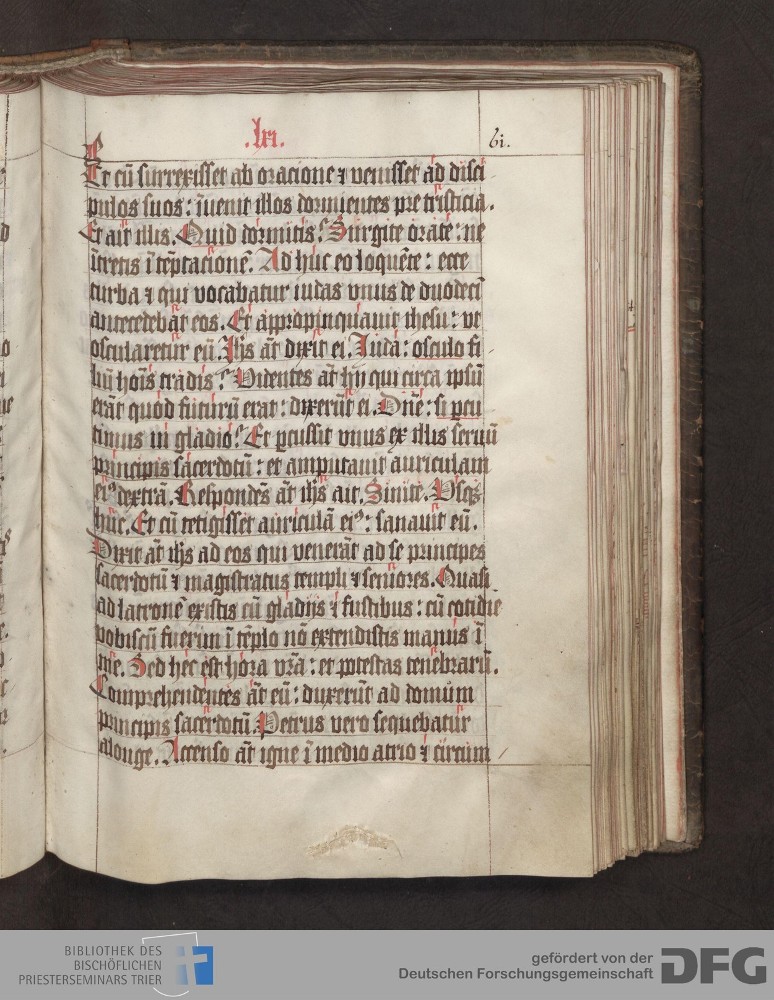 .lvi.
bi.
Et cū surrexisset ab oracione ⁊ venisset ad disci
pulos suos: īuenit illos dormientes pre tristicia.
Et ait illis. Quid dormitis? Surgite orate: ne
ītretis ī tēptacionē. Ad huc eo loquēte: ecce
turba ⁊ qui vocabatur iudas vnus de duodecī
antecedebāt eos. Et appropinquauit ihesu: vt
oscularetur eū. Ihs āt dixit ei. Iuda: osculo fi
liū hoīs tradis? Videntes āt hij qui circa ipsū
erāt quod futurū erat: dixerūt ei. Dn̄e: si ꝑcu
timus in gladio? Et ꝑcussit vnus ex illis seruū
principis sacerdotū: et amputauit auriculam
eiꝰ dextrā. Respondēs āt ihs ait. Sinite. Vsqꝫ
huc. Et cū tetigisset auriculā eiꝰ: sanauit eū.
Dixit āt ihs ad eos qui venerāt ad se principes
sacerdotū ⁊ magistratus templi ⁊ seniores. Quasi
ad latronē existis cū gladijs ⁊ fustibus: cū cotidie
vobiscū fuerim ī tēplo nō extendistis manus ī
me. Sed hec est hora vr̄a: et potestas tenebrarū.
Comprehendentes āt eū: duxerūt ad domum
principis sacerdotū. Petrus vero sequebatur
alonge. Accenso āt igne ī medio atrio ⁊ circum
BIBLIOTHEK DES
BISCHÖFLICHEN
PRIESTERSEMINARS TRIER
gefördert von der
Deutschen Forschungsgemeinschaft
DFG